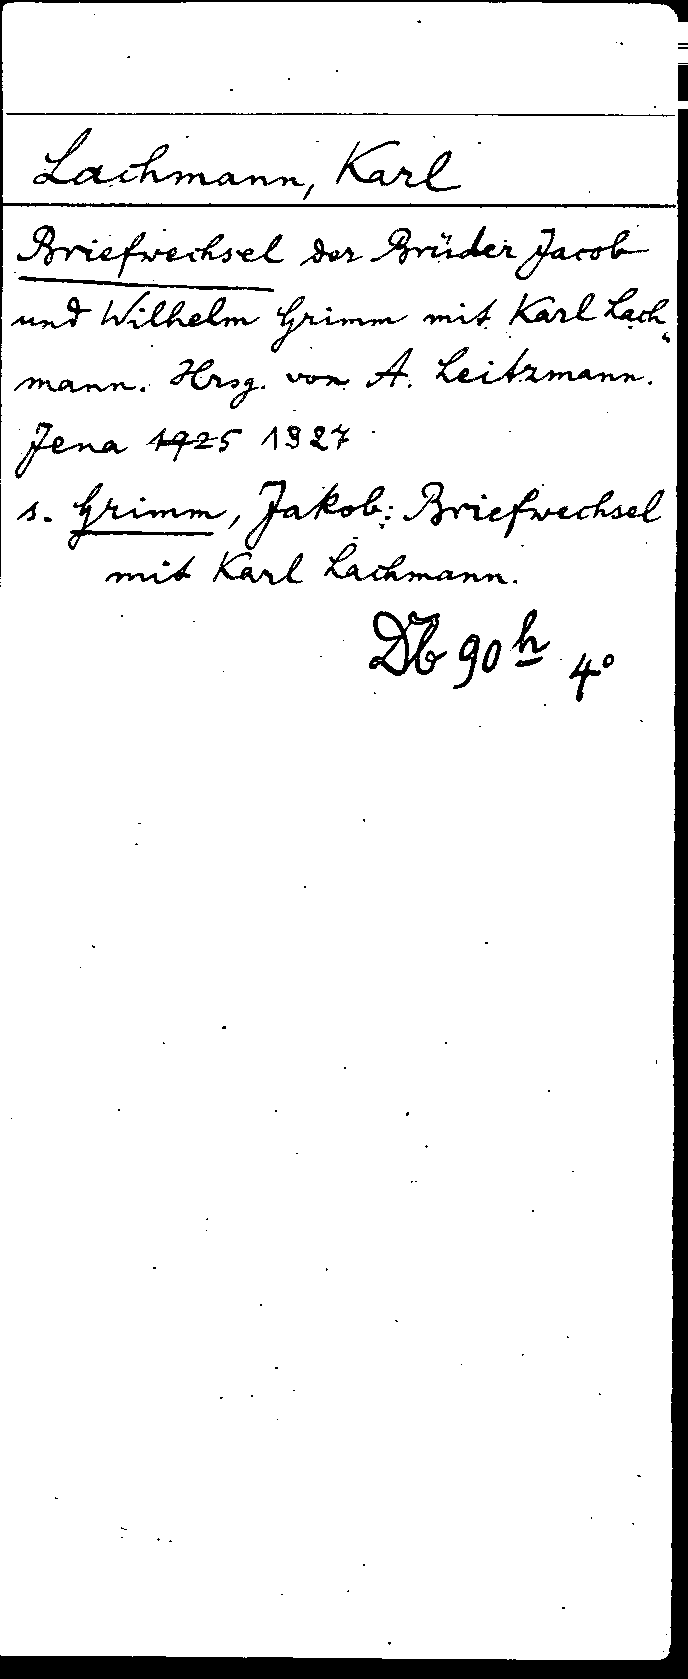 Lachmann, Karl
Briefwechsel der Brüder Jacob
und Wilhelm Grimm mit Karl Lach„
mann. Hrsg. von A. Leitzmann.
Jena 1925 1927
s. Grimm, Jakob: Briefwechsel
mit Karl Lachmann.
Db 90 h 4°